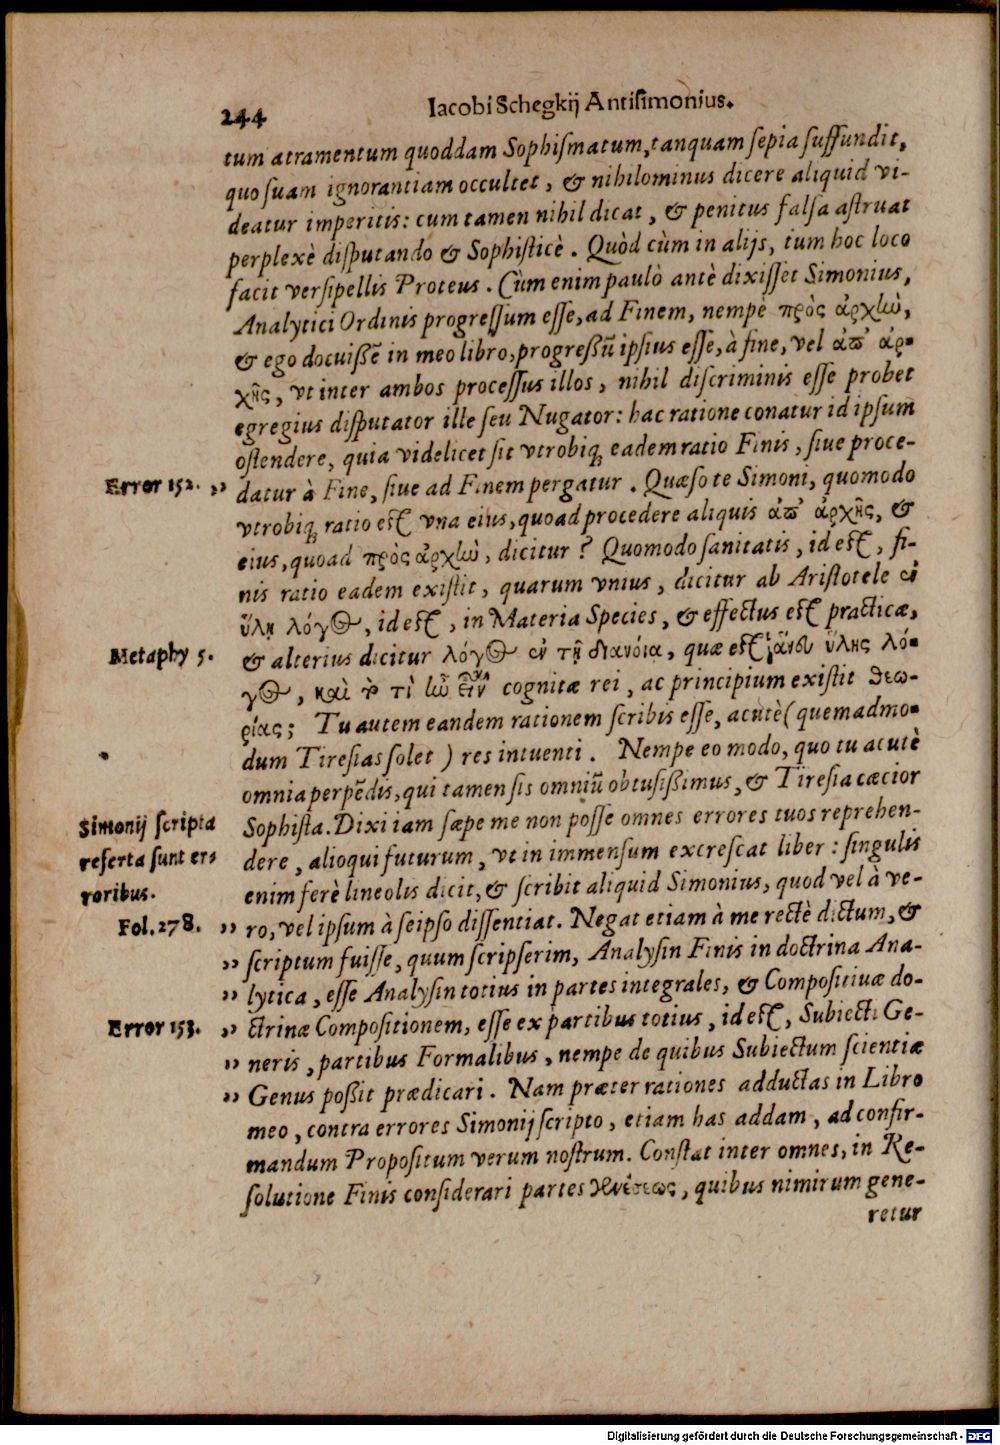 244 Iacobi Schegkij Antisimonius.
tum atramentum quoddam Sophismatum, tanquam sepia suffundit,
quo suam ignorantiam occultet, & nihilominus dicere aliquid vi-
deatur imperitis: cum tamen nihil dicat, & penitus falsa astruat
perplexè disputando & Sophisticè. Quòd cùm in alijs, tum hoc loco
facit versipellis Proteus. Cùm enim paulò antè dixisset Simonius,
Analytici Ordinis progressum esse, ad Finem, nempè πρὸς ἀρχὴν,
& ego docuissē in meo libro, progressū ipsius esse, à fine, vel ἀπ' ἀρ-
χῆς, vt inter ambos processus illos, nihil discriminis esse probet
egregius disputator ille seu Nugator: hac ratione conatur id ipsum
ostendere, quia videlicet sit vtrobiq; eadem ratio Finis, siue proce-
Error 152. ,, datur à Fine, siue ad Finem pergatur. Quæso te Simoni, quomodo
vtrobiq; ratio est vna eius, quoad procedere aliquis ἀπ' ἀρχῆς, &
eius, quoad πρὸς ἀρχὴν, dicitur? Quomodo sanitatis, id est, fi-
nis ratio eadem existit, quarum vnius, dicitur ab Aristotele ἐν
ὕλῃ λόγος, id est, in Materia Species, & effectus est practicæ,
Metaphy 5. & alterius dicitur λόγος ἐν τῇ διανόια, quæ est ἄνευ ὕλης λό-
γος, καὶ τὸ τὶ ἦν εἶναι cognitæ rei, ac principium existit θεω-
ρίας; Tu autem eandem rationem scribis esse, acutè (quemadmo-
dum Tiresias solet) res intuenti. Nempe eo modo, quo tu acutè
omnia perpēdis, qui tamen sis omniū obtusissimus, & Tiresia cæcior
Simonij scripta Sophista. Dixi iam sæpe me non posse omnes errores tuos reprehen-
referta sunt er- dere, alioqui futurum, vt in immensum excrescat liber: singulis
roribus. enim ferè lineolis dicit, & scribit aliquid Simonius, quod vel à ve-
Fol. 278. ,, ro, vel ipsum à seipso dissentiat. Negat etiam à me rectè dictum, &
,, scriptum fuisse, quum scripserim, Analysin Finis in doctrina Ana-
,, lytica, esse Analysin totius in partes integrales, & Compositiuæ do-
Error 153. ,, ctrinæ Compositionem, esse ex partibus totius, id est, Subiecti Ge-
,, neris, partibus Formalibus, nempe de quibus Subiectum scientiæ
,, Genus possit prædicari. Nam præter rationes adductas in Libro
meo, contra errores Simonij scripto, etiam has addam, ad confir-
mandum Propositum verum nostrum. Constat inter omnes, in Re-
solutione Finis considerari partes γενέσεως, quibus nimirum gene-
retur
Digitalisierung gefördert durch die Deutsche Forschungsgemeinschaft - DFG